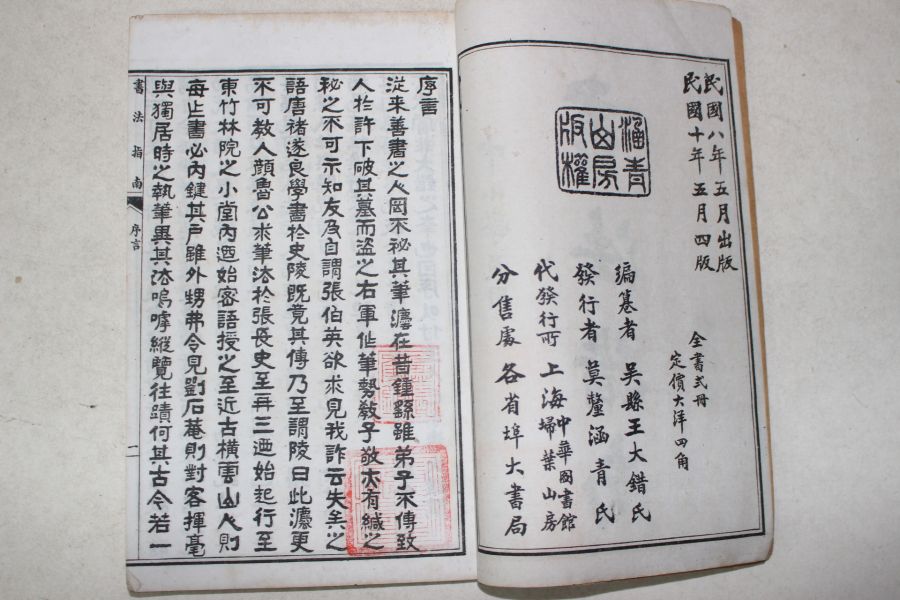 民國八年五月出版
民國十年五月四版
涵青
山房
版權
全書弍冊
定價大洋四角
編纂者 吳縣王大錯氏
發行者 莫釐涵青氏
代發行所 上海
中華圖書館
掃葉山房
分售處 各省埠大書局
序言
從來善書之人罔不祕其筆灋在昔鍾繇雖弟子不傳致
人於許下破其墓而盜之右軍作筆勢敎子敬亦有緘之
祕之不可示知友及自謂張伯英欲求見我詐云失矣之
語唐褚遂良學書於史陵旣竟其傳乃至謂陵曰此灋更
不可教人顏魯公求筆法於張長史至再三迺始起行至
東竹林院之小堂內迺始密語授之至近古橫雲山人則
每作書必內鍵其戶雖外甥弗令見劉石菴則對客揮毫
與獨居時之執筆異其法嗚嘑縱覽往蹟何其古今若一
書法指南
序言
一